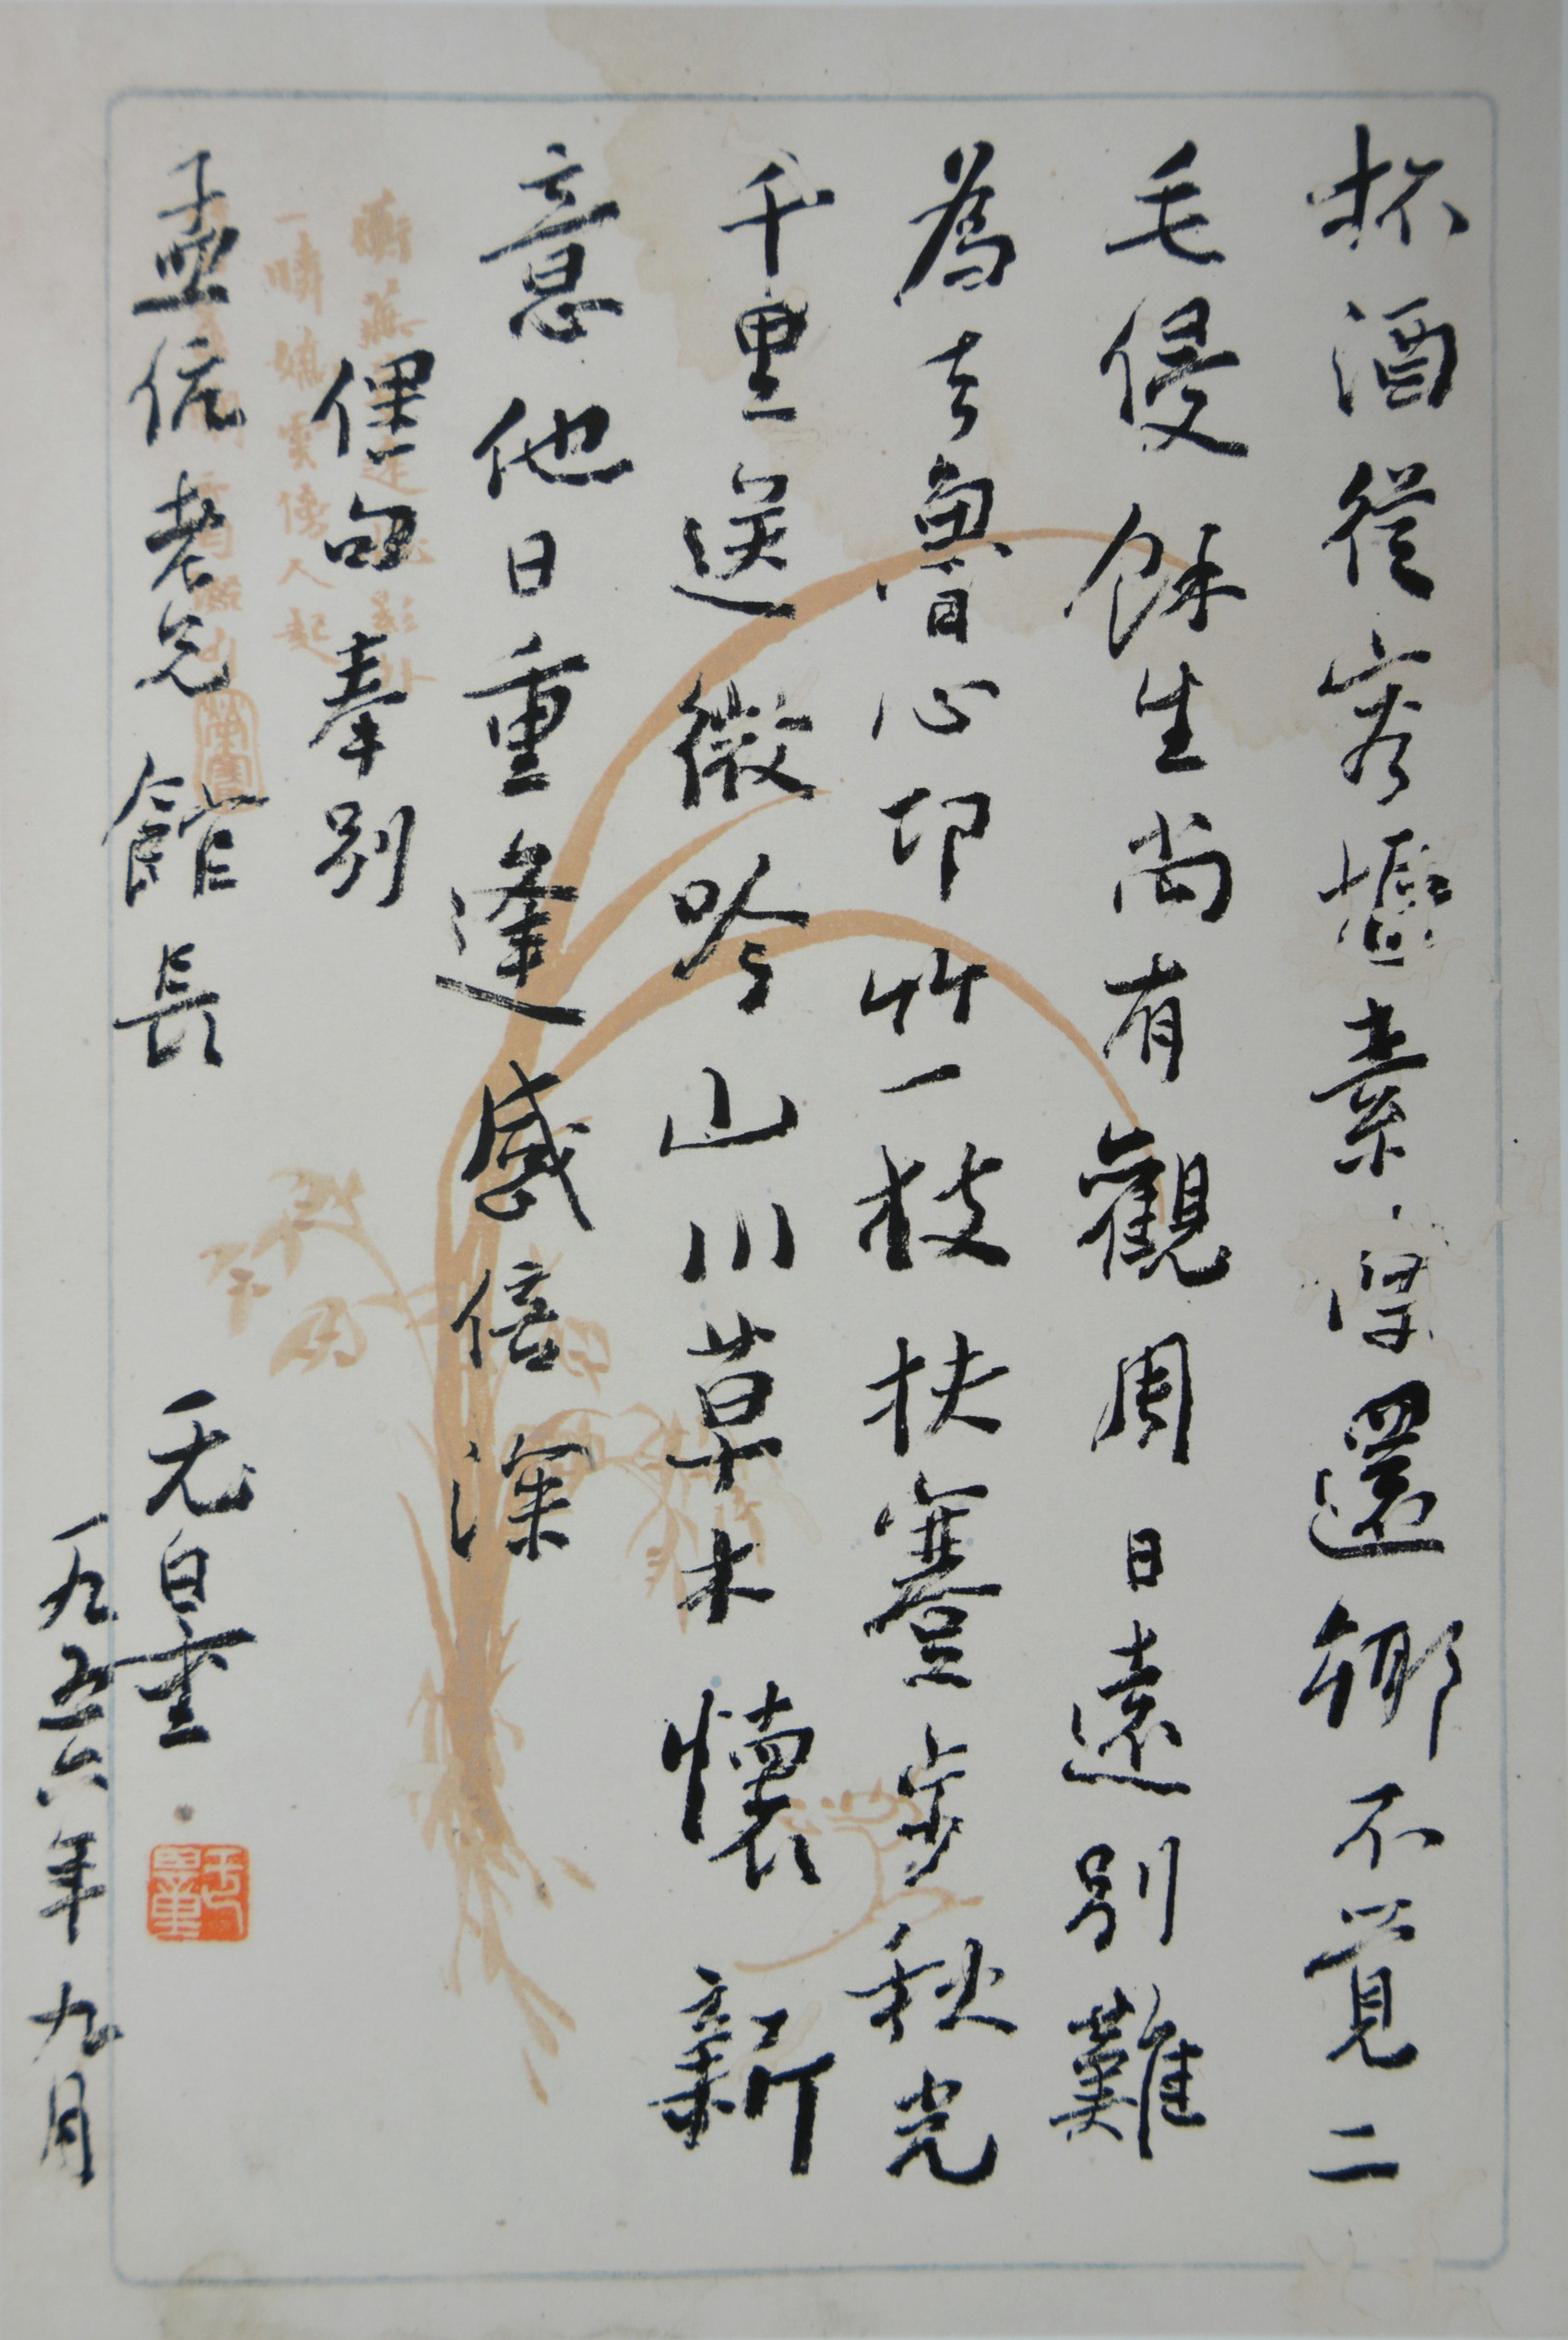 杯酒從容攄素還鄉不覺二
毛侵餘生尚有觀周日遠別難
為去魯心邛竹一枝扶蹇步秋光
千里送微吟山川草木懷新
意他日重逢感倍深
俚句奉別
孟伉老兄館長
无量
一九五六年九月